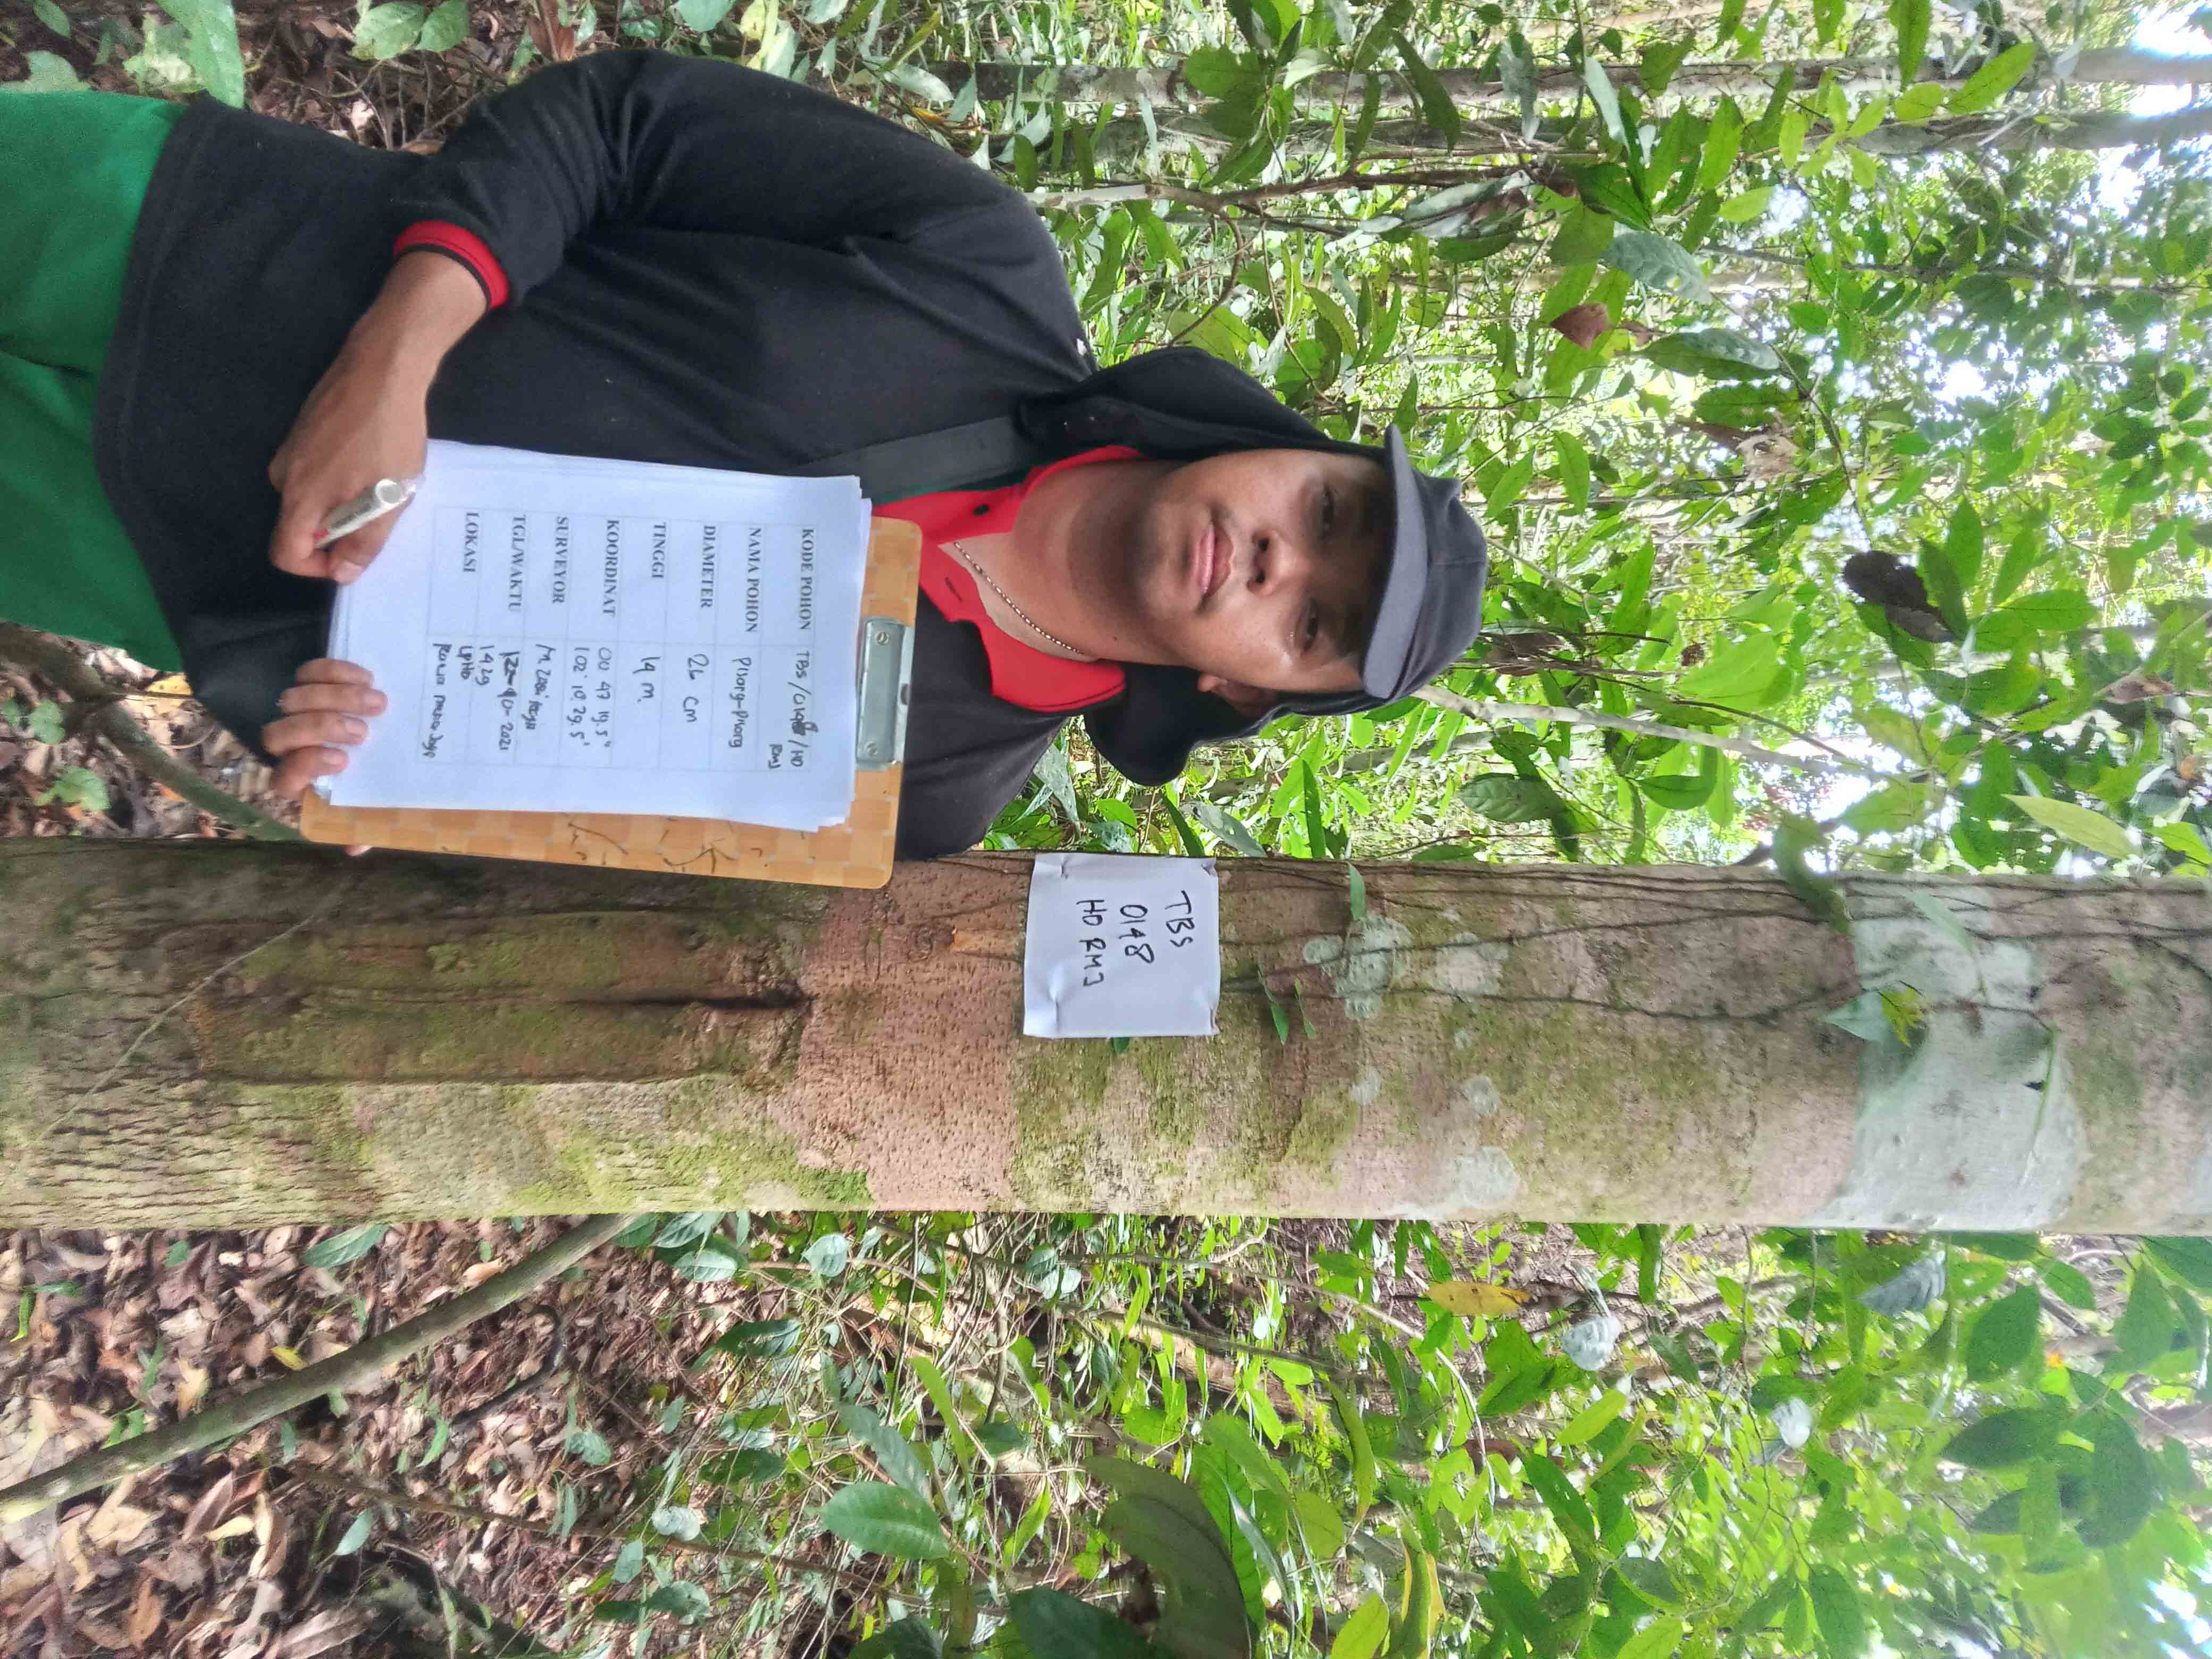 TBS
0148
HD RMJ
KODE POHON TBS/0148/HD
RMJ
NAMA POHON Pisang-Pisang
DIAMETER 26 cm
TINGGI 14 m.
KOORDINAT 00 47 19.5"
102° 10' 29.5"
SURVEYOR M.
TGL/WAKTU 10-2021
14 29
LOKASI LPHD
Rawa Mekar Jaya